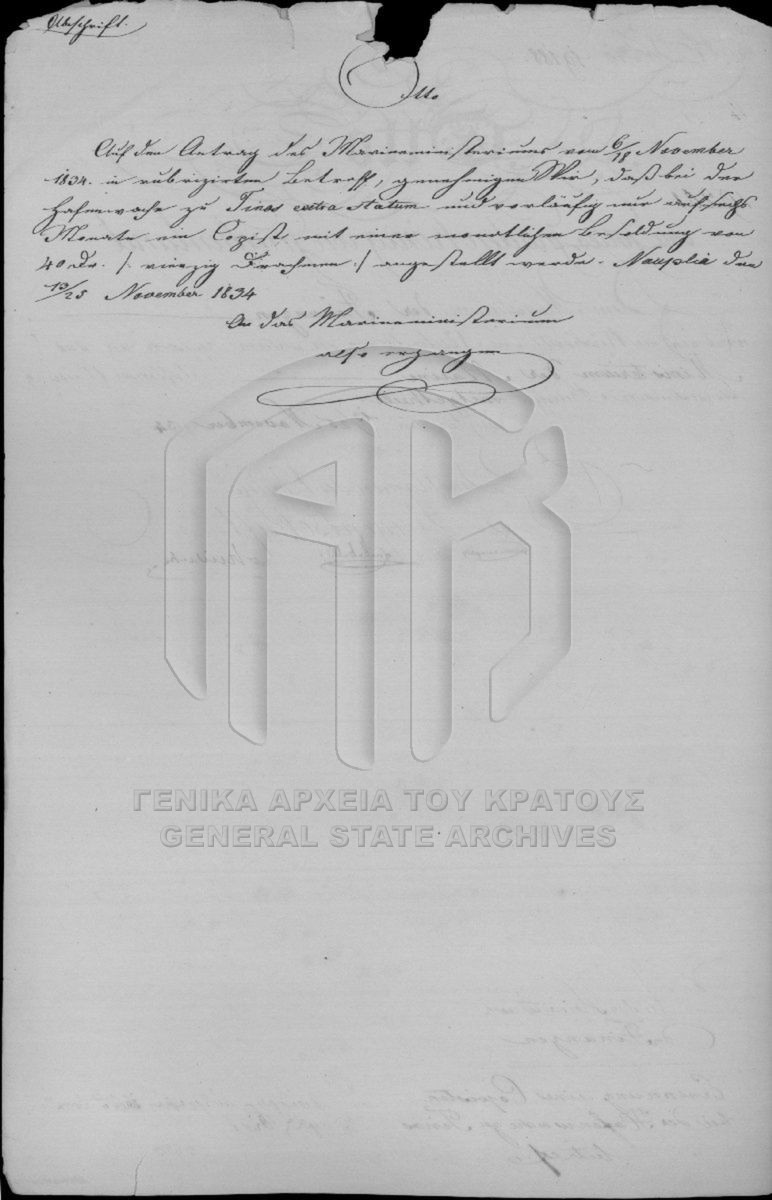 Abschrift.
Otto
Auf den Antrag des Marineministeriums vom 6/18 November
1834. in rubrizirtem Betreff, genehmigen Wir, daß bei der
Hafenwache zu Tinos extra statum und vorläufig nur auf sechs
Monate ein Copist mit einer monatlichen Besoldung von
40 Dr. /: vierzig Drachmen :/ angestellt werde. Nauplia den
13/25 November 1834
An das Marineministerium
also ergangen
ΓΕΝΙΚΑ ΑΡΧΕΙΑ ΤΟΥ ΚΡΑΤΟΥΣ
GENERAL STATE ARCHIVES